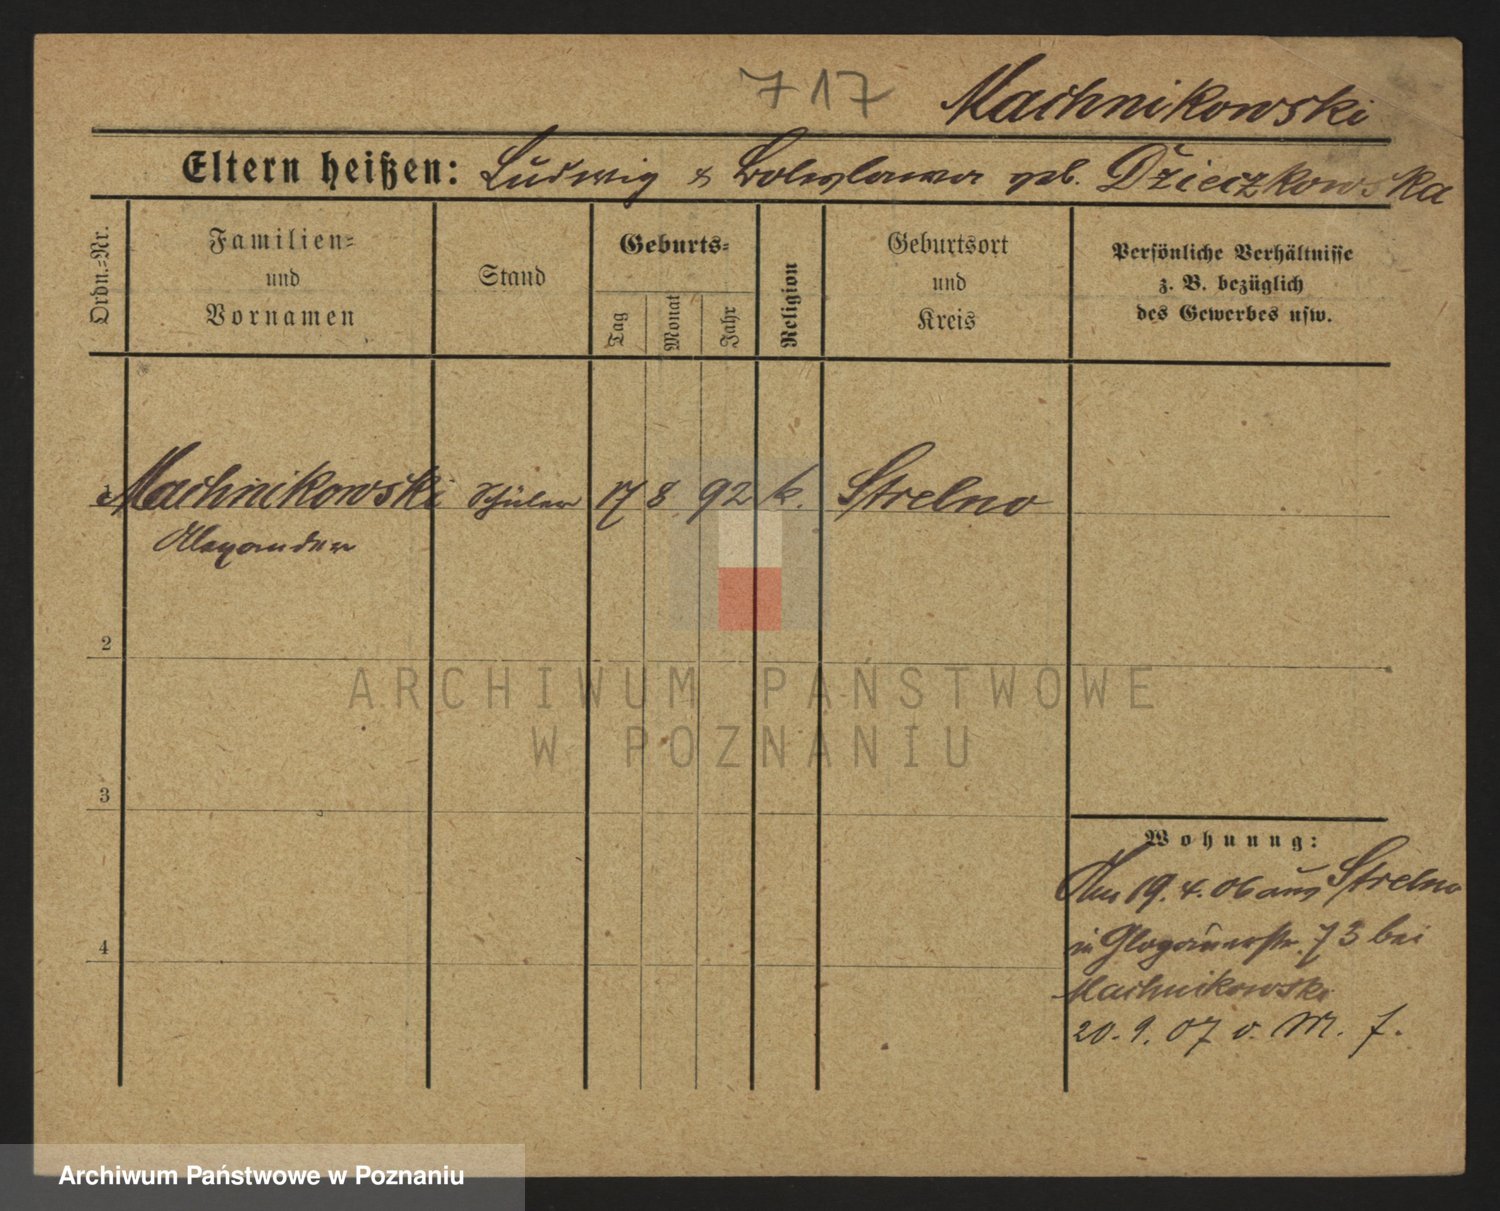 717 Machnikowski
Eltern heißen: Ludwig & Boleslawa geb. Dzieczkowska
Ordn.-Nr.
Familien-
und
Vornamen
Stand
Geburts-
Tag
Monat
Jahr
Religion
Geburtsort
und
Kreis
Persönliche Verhältnisse
z. B. bezüglich
des Gewerbes usw.
1 Machnikowski Schüler 17 8 92 k. Strelno
Alexander
2
3
4
Wohnung:
19. 4. 06 aus Strelno
in Glogauerstr. 73 bei
Machnikowski
20. 9. 07 v. M. f.
ARCHIWUM PAŃSTWOWE
W POZNANIU
Archiwum Państwowe w Poznaniu